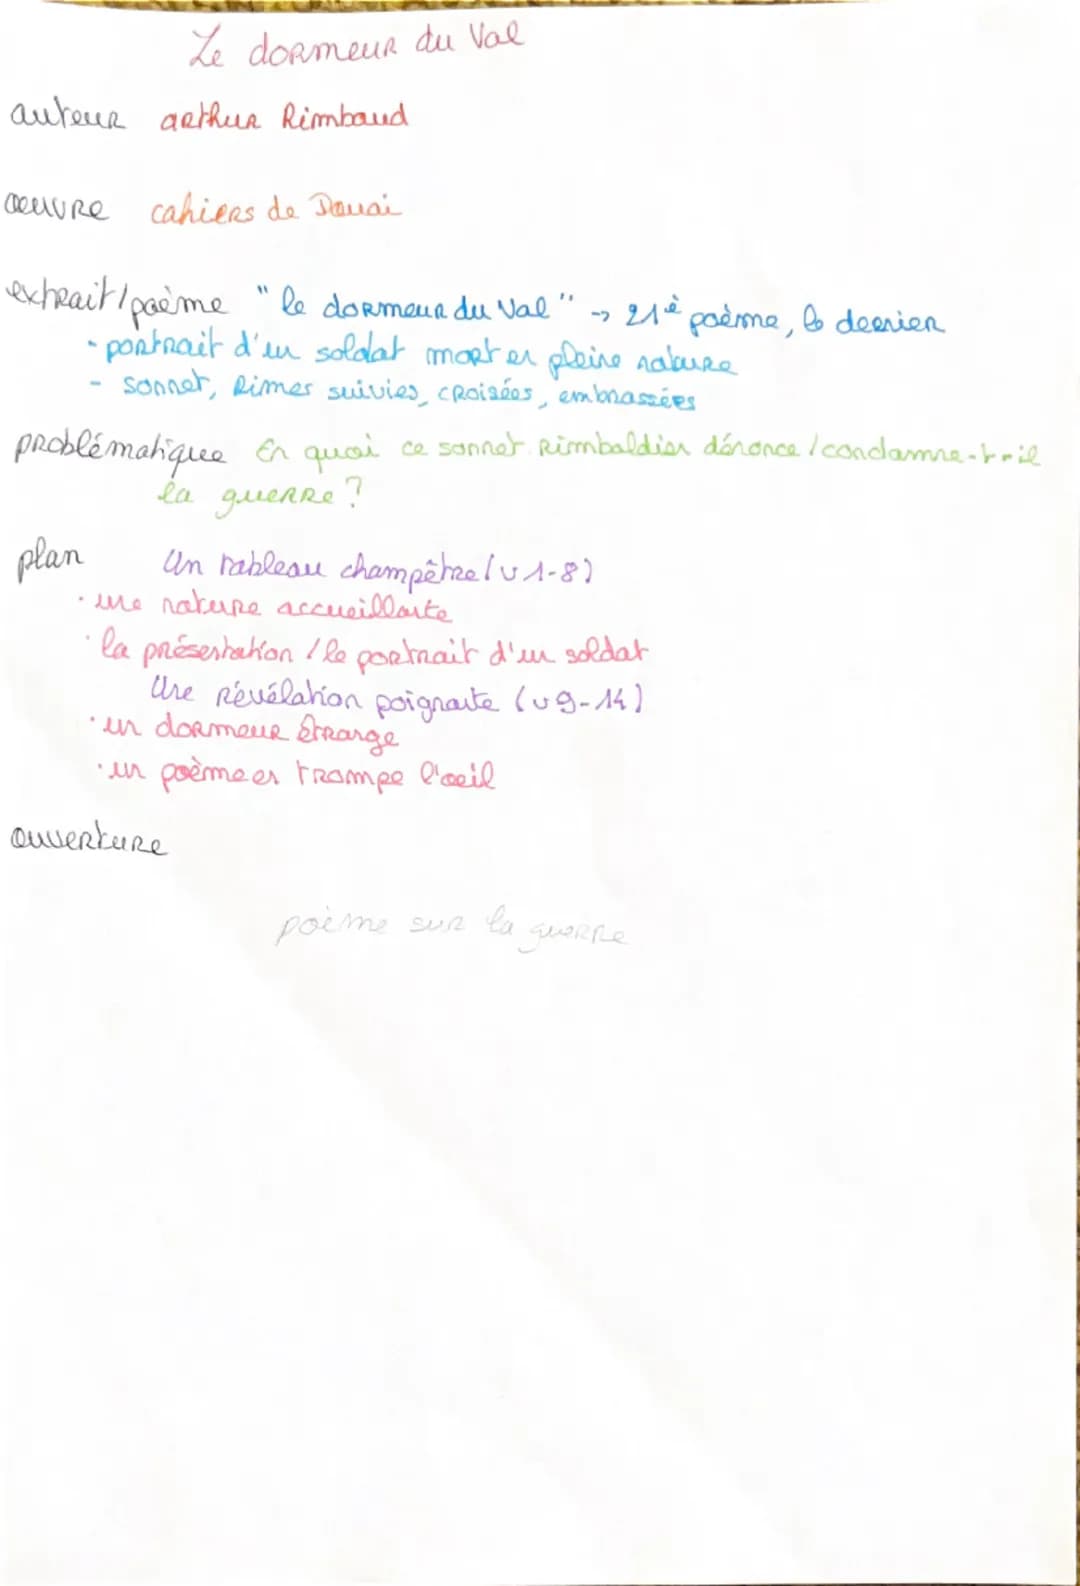 Le dormeur du Val
auteur arthur Rimbaud
œuvre cahiers de Douai
extrait/poème "le dormeur du Val" → 21è poème, le dernier
- portrait d'un soldat mort en pleine nature
- sonnet, Rimes suivies, croisées, embrassées
problématique En quoi ce sonnet Rimbaldien dénonce/condamne-t-il
la guerre ?
plan Un tableau champêtre (v 1-8)
• une nature accueillante
• la présentation / le portrait d'un soldat
Une révélation poignante (v 9-14)
• un dormeur étrange
• un poème en trompe l'oeil
ouverture
poème sur la guerre